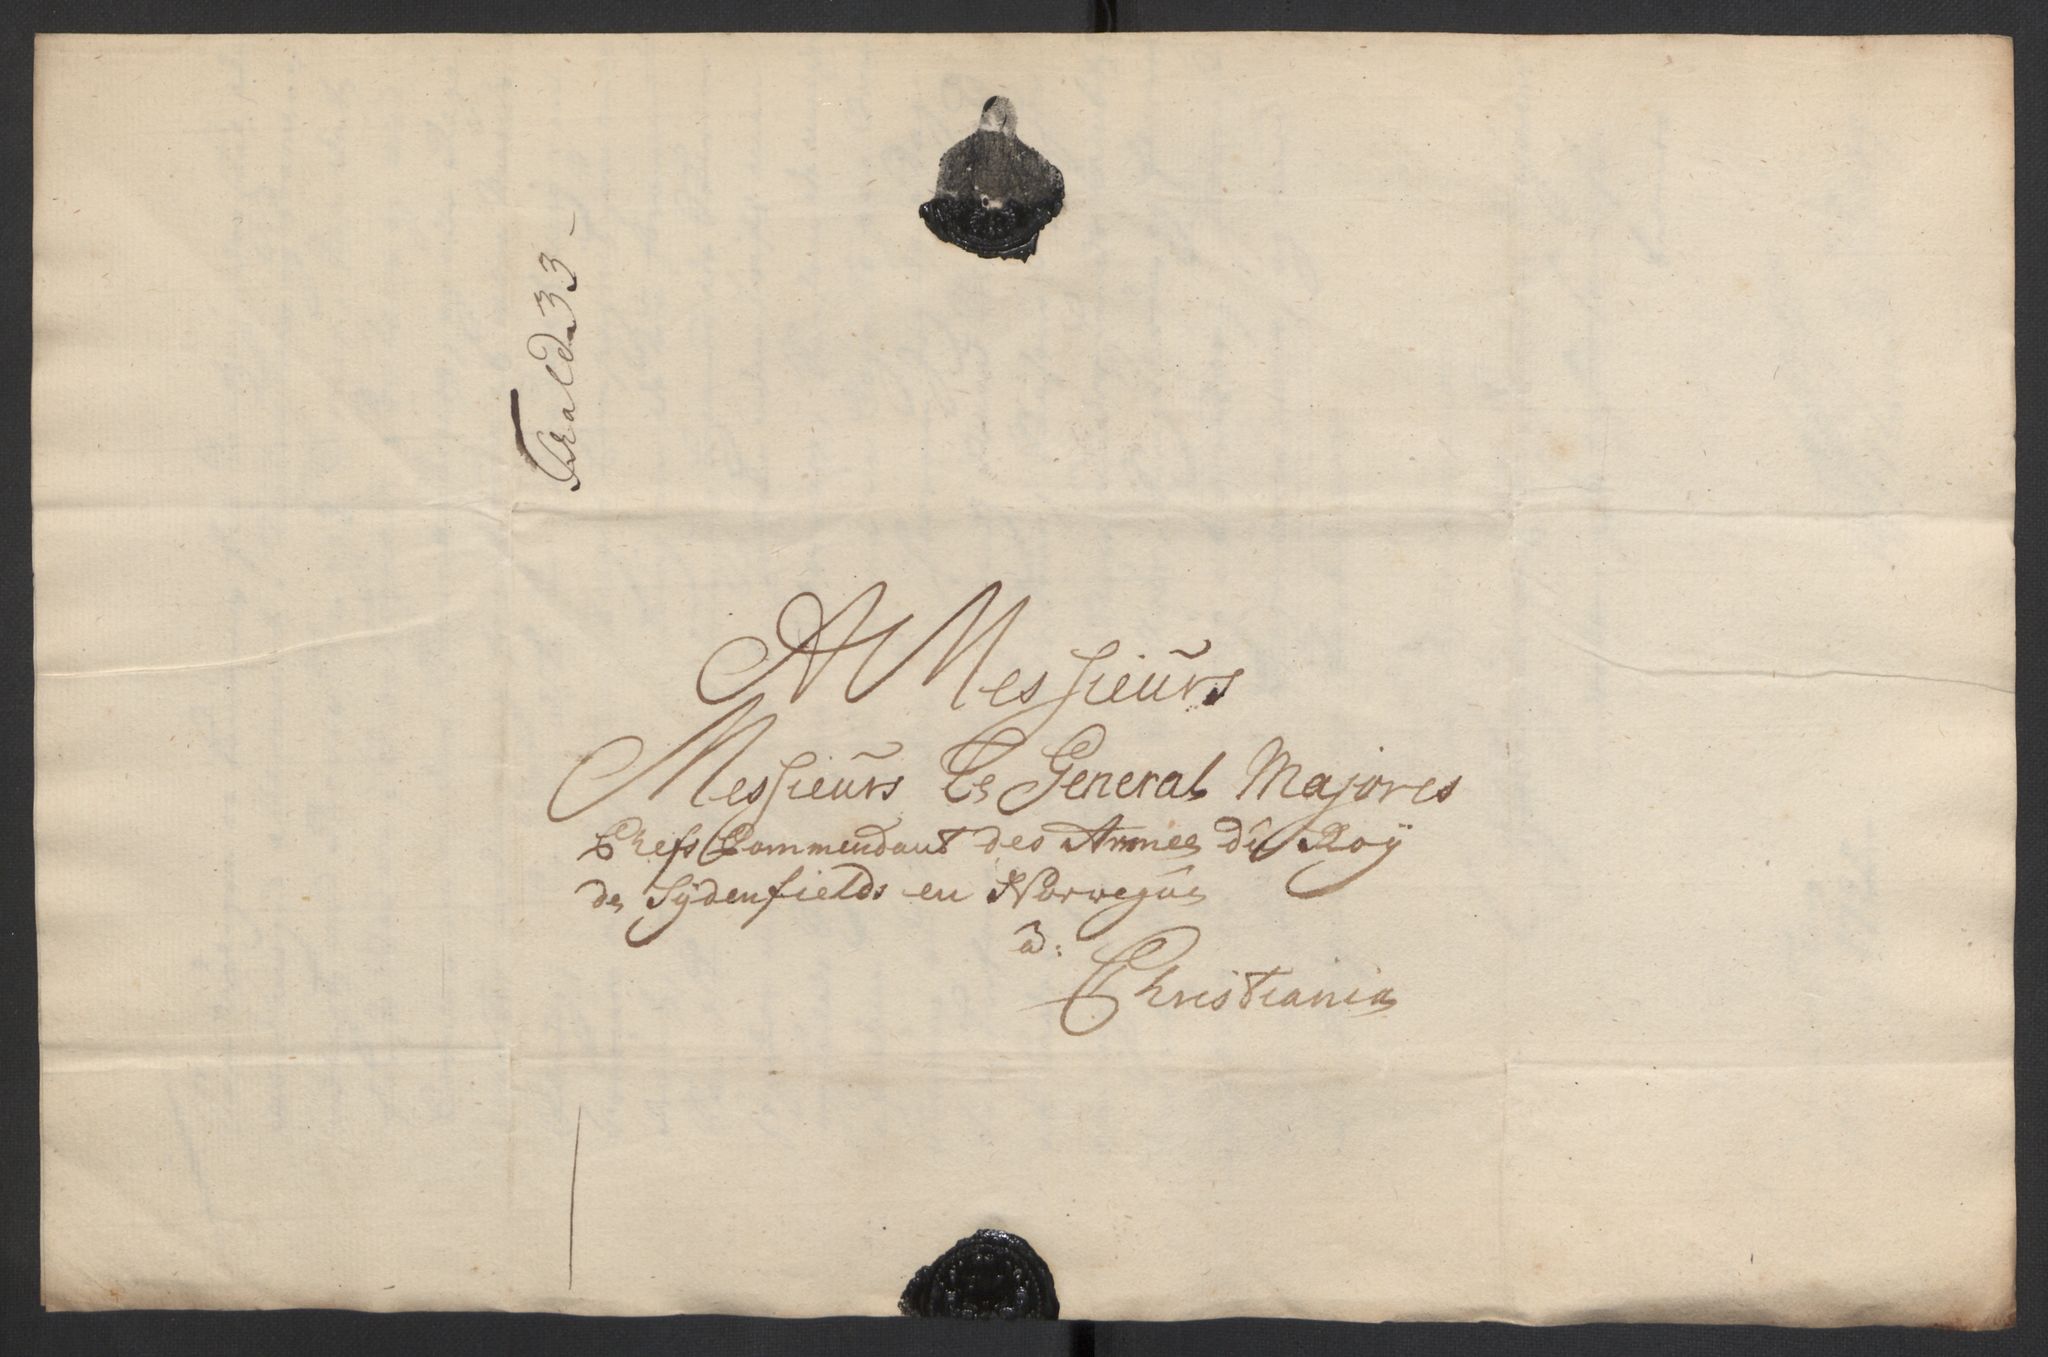 A Messieurs
Messieurs Le General Majores
Chefs Commendant des Armee du Roy
de Sydenfields en Norwegue
a:
Christiania
33